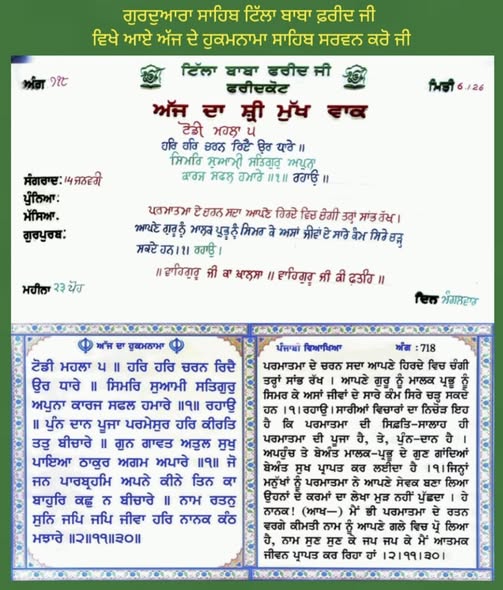 ਗੁਰਦੁਆਰਾ ਸਾਹਿਬ ਟਿੱਲਾ ਬਾਬਾ ਫ਼ਰੀਦ ਜੀ
ਵਿਖੇ ਆਏ ਅੱਜ ਦੇ ਹੁਕਮਨਾਮਾ ਸਾਹਿਬ ਸਰਵਨ ਕਰੋ ਜੀ
ਅੰਗ ੭੧੮
ਟਿੱਲਾ ਬਾਬਾ ਫਰੀਦ ਜੀ
ਫਰੀਦਕੋਟ
ਮਿਤੀ 6.1.26
ਅੱਜ ਦਾ ਸ਼੍ਰੀ ਮੁੱਖ ਵਾਕ
ਟੋਡੀ ਮਹਲਾ ੫
ਹਰਿ ਹਰਿ ਚਰਨ ਰਿਦੈ ਉਰ ਧਾਰੇ ॥
ਸਿਮਰਿ ਸੁਆਮੀ ਸਤਿਗੁਰੁ ਅਪੁਨਾ
ਕਾਰਜ ਸਫਲ ਹਮਾਰੇ ॥੧॥ ਰਹਾਉ ॥
ਸੰਗਰਾਦ: ੧੪ ਜਨਵਰੀ
ਪੁੰਨਿਆ:
ਮੱਸਿਆ:
ਗੁਰਪੁਰਬ:
ਪਰਮਾਤਮਾ ਦੇ ਚਰਨ ਸਦਾ ਆਪਣੇ ਹਿਰਦੇ ਵਿਚ ਚੰਗੀ ਤਰ੍ਹਾਂ ਸਾਂਭ ਰੱਖ ।
ਆਪਣੇ ਗੁਰੂ ਨੂੰ ਮਾਲਕ ਪ੍ਰਭੂ ਨੂੰ ਸਿਮਰ ਕੇ ਅਸਾਂ ਜੀਵਾਂ ਦੇ ਸਾਰੇ ਕੰਮ ਸਿਰੇ ਚੜ੍ਹ
ਸਕਦੇ ਹਨ ।੧। ਰਹਾਉ ।
॥ ਵਾਹਿਗੁਰੂ ਜੀ ਕਾ ਖ਼ਾਲਸਾ ॥ ਵਾਹਿਗੁਰੂ ਜੀ ਕੀ ਫ਼ਤਹਿ ॥
ਮਹੀਨਾ ੨੩ ਪੋਹ
ਦਿਨ ਮੰਗਲਵਾਰ
ਅੱਜ ਦਾ ਹੁਕਮਨਾਮਾ
ਟੋਡੀ ਮਹਲਾ ੫ ॥ ਹਰਿ ਹਰਿ ਚਰਨ ਰਿਦੈ
ਉਰ ਧਾਰੇ ॥ ਸਿਮਰਿ ਸੁਆਮੀ ਸਤਿਗੁਰੁ
ਅਪੁਨਾ ਕਾਰਜ ਸਫਲ ਹਮਾਰੇ ॥੧॥ ਰਹਾਉ
॥ ਪੁੰਨ ਦਾਨ ਪੂਜਾ ਪਰਮੇਸੁਰ ਹਰਿ ਕੀਰਤਿ
ਤਤੁ ਬੀਚਾਰੇ ॥ ਗੁਨ ਗਾਵਤ ਅਤੁਲ ਸੁਖੁ
ਪਾਇਆ ਠਾਕੁਰ ਅਗਮ ਅਪਾਰੇ ॥੧॥ ਜੋ
ਜਨ ਪਾਰਬ੍ਰਹਮਿ ਅਪਨੇ ਕੀਨੇ ਤਿਨ ਕਾ
ਬਾਹੁਰਿ ਕਛੁ ਨ ਬੀਚਾਰੇ ॥ ਨਾਮ ਰਤਨੁ
ਸੁਨਿ ਜਪਿ ਜਪਿ ਜੀਵਾ ਹਰਿ ਨਾਨਕ ਕੰਠ
ਮਝਾਰੇ ॥੨॥੧੧॥੩੦॥
ਪੰਜਾਬੀ ਵਿਆਖਿਆ ਅੰਗ : 718
ਪਰਮਾਤਮਾ ਦੇ ਚਰਨ ਸਦਾ ਆਪਣੇ ਹਿਰਦੇ ਵਿਚ ਚੰਗੀ
ਤਰ੍ਹਾਂ ਸਾਂਭ ਰੱਖ । ਆਪਣੇ ਗੁਰੂ ਨੂੰ ਮਾਲਕ ਪ੍ਰਭੂ ਨੂੰ
ਸਿਮਰ ਕੇ ਅਸਾਂ ਜੀਵਾਂ ਦੇ ਸਾਰੇ ਕੰਮ ਸਿਰੇ ਚੜ੍ਹ ਸਕਦੇ
ਹਨ ।੧।ਰਹਾਉ।ਸਾਰੀਆਂ ਵਿਚਾਰਾਂ ਦਾ ਨਿਚੋੜ ਇਹ
ਹੈ ਕਿ ਪਰਮਾਤਮਾ ਦੀ ਸਿਫ਼ਤਿ-ਸਾਲਾਹ ਹੀ
ਪਰਮਾਤਮਾ ਦੀ ਪੂਜਾ ਹੈ, ਤੇ, ਪੁੰਨ-ਦਾਨ ਹੈ ।
ਅਪਹੁੰਚ ਤੇ ਬੇਅੰਤ ਮਾਲਕ-ਪ੍ਰਭੂ ਦੇ ਗੁਣ ਗਾਂਦਿਆਂ
ਬੇਅੰਤ ਸੁਖ ਪ੍ਰਾਪਤ ਕਰ ਲਈਦਾ ਹੈ ।੧।ਜਿਨ੍ਹਾਂ
ਮਨੁੱਖਾਂ ਨੂੰ ਪਰਮਾਤਮਾ ਨੇ ਆਪਣੇ ਸੇਵਕ ਬਣਾ ਲਿਆ
ਉਹਨਾਂ ਦੇ ਕਰਮਾਂ ਦਾ ਲੇਖਾ ਮੁੜ ਨਹੀਂ ਪੁੱਛਦਾ । ਹੇ
ਨਾਨਕ! (ਆਖ—) ਮੈਂ ਭੀ ਪਰਮਾਤਮਾ ਦੇ ਰਤਨ
ਵਰਗੇ ਕੀਮਤੀ ਨਾਮ ਨੂੰ ਆਪਣੇ ਗਲੇ ਵਿਚ ਪ੍ਰੋ ਲਿਆ
ਹੈ, ਨਾਮ ਸੁਣ ਸੁਣ ਕੇ ਜਪ ਜਪ ਕੇ ਮੈਂ ਆਤਮਕ
ਜੀਵਨ ਪ੍ਰਾਪਤ ਕਰ ਰਿਹਾ ਹਾਂ ।੨।੧੧।੩੦।